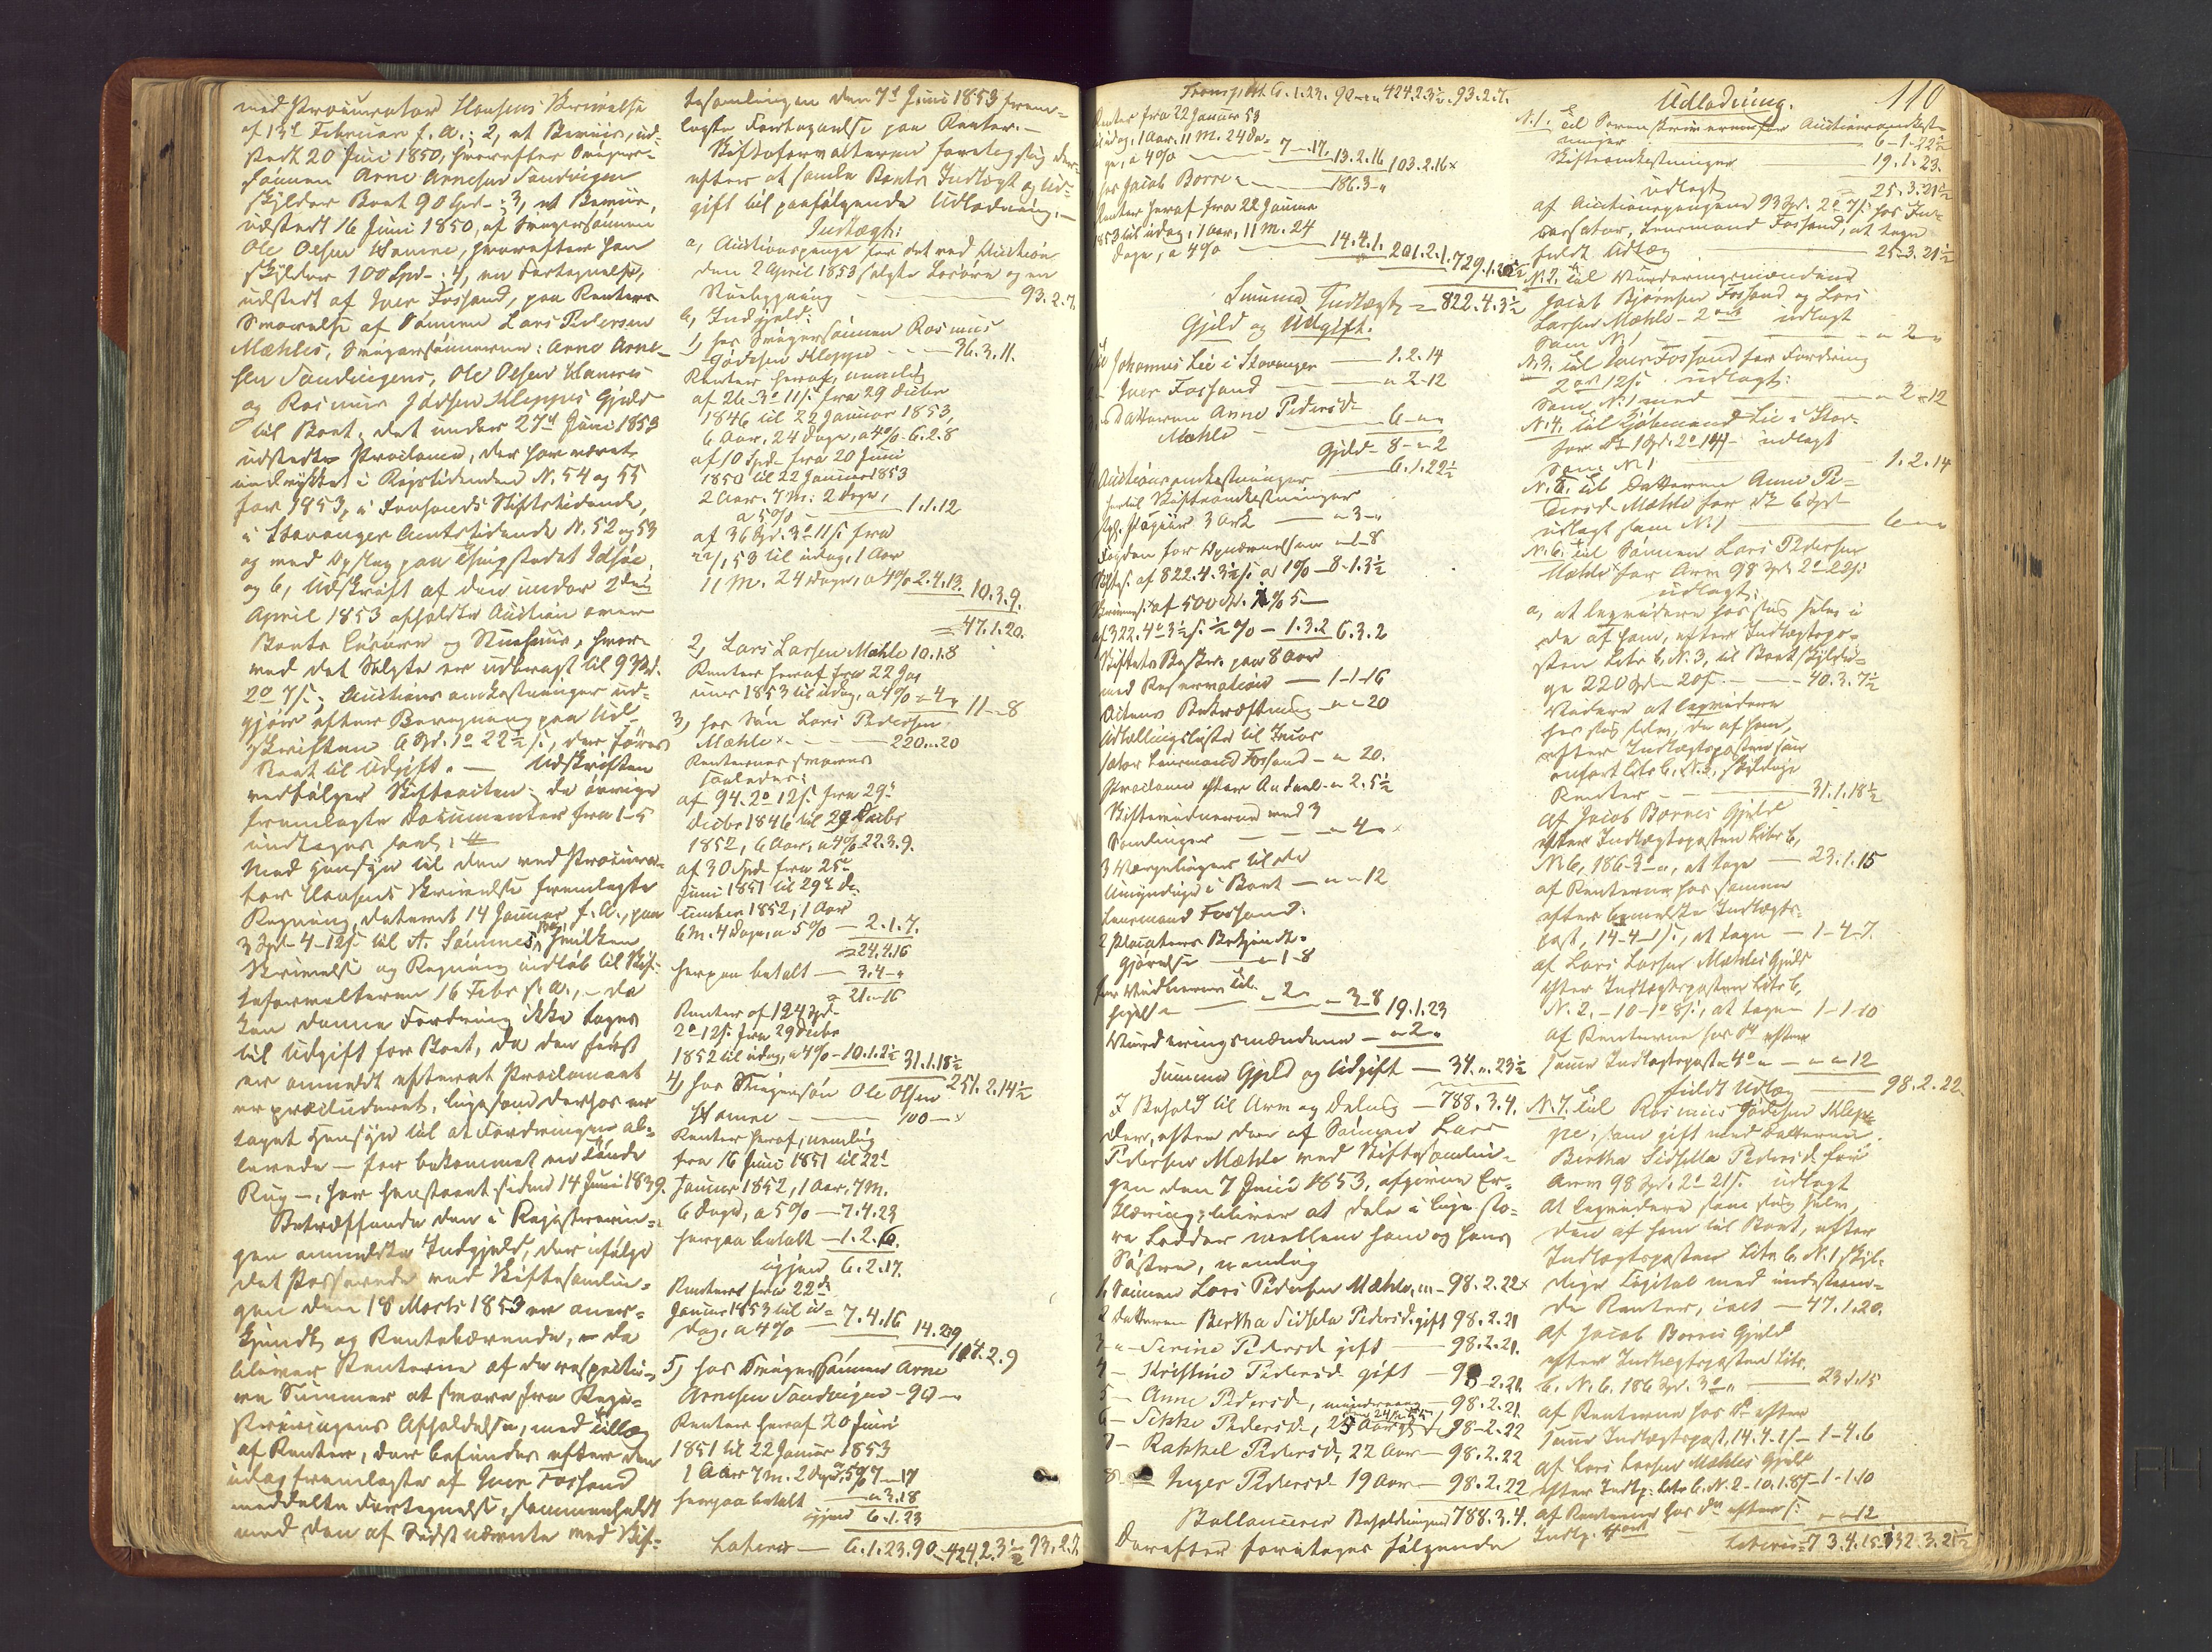 med Procurator Hansens Skrivelse
af 13de Februar f. A.; 2, et Beviis, ud-
stedt 20 Juni 1850, hvorefter Sviger-
sönnen Arne Arnesen Sandvigen
skylder Boet 90 Spd.; 3, et Beviis,
udstedt 16 Juni 1850, af Svigersönnen
Ole Olsen Hamre, hvorefter han
skylder 100 Spd.; 4, en Fortegnelse,
udstedt af Iver Fossand, paa Renters
Svarelse af Sönnen Lars Pedersen
Mæhles, Svigersönnerne: Arne Arne-
sen Sandvigens, Ole Olsen Hamres
og Rasmus Gjödesen Kleppes Gjæld
til Boet. det under 27de Juni 1853
udstedte Proclama, der har været
indrykket i Rigstidenden N. 54 og 55
for 1853, i Christiansands Stiftstidende,
i Stavanger Amtstidende N. 52 og 53
og med Opslag paa Thingstedet Idsöe,
og 6, Udskrift af den under 2den
April 1853 afholdte Auction over
Boets Lösöre og Stuehuus, hvor-
ved det Solgte er udbragt til 93 Spd.
2 o 7 s.; Auctionsomkostninger ud-
gjör efter Beregning paa Ud-
skriften 6 Spd. 1 o 22½ s., der föres
Boet til Udgift. — Udskriften
vedfölger Skifteacten; de övrige
fremlagte Documenter fra 1-5
indtages saal.:
Med Hensyn til den ved Procura-
tor Hansens Skrivelse fremlagte
Regning, dateret 14 Januar f. A., paa
3 Spd. 4-12 s. til A. Sömmes
Skrivelse og Regning indlöb til Skif-
teforvalteren 16 Febr f. A., — da
kan denne Fordring ikke tages
til Udgift for Boet, da den först
er anmeldt efterat Proclamaet
er præcluderet, ligesom derhos er
taget Hensyn til at Fordringen al-
lerede — for bekommet en Tönde
Rug —, har henstaaet siden 14 Juni 1839.
Betræffende den i Registrerin-
gen anmeldte Indgjæld, der ifölge
det Passerede ved Skiftesamlin-
gen den 18 Marts 1853 er aner-
kjendt og Rentebærende, — da
bliver Renterne af de respecti-
ve Summer at svare fra Regi-
streringens Afholdelse, med Tillæg
af Renter, der befindes efter den
idag fremlagte af Iver Fossand
meddelte Fortegnelse, sammenholdt
med den af Sidstnævnte ved Skif-
tesamlingen den 7de Juni 1853 frem-
lagte Fortegnelse paa Renter. —
Skifteforvalteren foretog sig der-
efter at samle Boets Indtægt og Ud-
gift til paafölgende Udlodning. —
Indtægt:
a, Auctionspenge for det ved Auction
den 2 April 1853 solgte Lösöre og en
Stuebygning — 93.2.7.
b, Indgjæld:
1, hos Svigersönnen Rasmus
Gjödesen Kleppe — 36.3.11.
Renter heraf, nemlig
af 26-3o 11 s. fra 29 Decbr
1846 til 22 Januar 1853,
6 Aar, 24 Dage, a 4% - 6.2.8
af 10 Spd. fra 20 Juni
1850 til 22 Januar 1853
2 Aar, 7 M. 2 Dage,
a 5% — 1.1.12
af 36 Spd. 3o 11 s. fra
22/1 53 til idag, 1 Aar
11 M. 24 Dage, a 4% 2.4.13. 10.3.9.
= 47.1.20.
2, Lars Larsen Mæhle 10.1.8
Renter heraf fra 22 Ja-
nuar 1853 til idag, a 4% - 4 „ 11-„8
3, hos Sön Lars Pedersen
Mæhle — 220.„.20
Renternes svares
saaledes:
af 94.2o 12 s. fra 29de
Decbr 1846 til 29 Decbr
1852, 6 Aar, a 4% 22.3.9.
af 30 Spd. fra 25de
Juni 1851 til 29de De-
cember 1852, 1 Aar
6 M. 4 Dage, a 5% — 2.1.7.
= 24.4.16
herpaa betalt — 3.4-„
= 21.„-16
Renter af 124 Spd.
2o 12 s. fra 29 Decbr
1852 til idag, a 4% - 10.1.2½ 31.1.18½
251.2.14½
4, hos Svigersön Ole Olsen
Hamre — 100-„
Renter heraf, nemlig
fra 16 Juni 1851 til 22de
Januar 1852, 1 Aar, 7 M.
6 Dage, a 5% — 7.4.23
herpaa betalt — 1.2.6.
igjen 6.2.17.
Renter fra 22de
Januar 1853 til i-
dag, a 4% — 7.4.16 14.2.9
114.2.9
5, hos Svigersönnen Arne
Arnesen Sandvigen - 90 -
Renter heraf 20 Juni
1851 til 22 Januar 1853
1 Aar 7 M. 2 Dage, 5% 7-„17
herpaa betalt — „.3.18
igjen 6.1.23
Lateris — 6.1.23. 90 - 424.2.3½ 93.2.7.
110
Transport 6.1.23. 90 - „ 424.2.3½. 93.2.7.
Renter fra 22 Januar 53
til idag, 1 Aar, 11 M. 24 Da-
ge, a 4% — 7-„17. 13.2.16 103.2.16
hos Jacob Borre — 186.3-„
Renter heraf fra 22 Januar
1853 til idag, 1 Aar, 11 M. 24
Dage, a 4% — 14.4.1. 201.2.1. 729.1.20½
Summa Indtægt = 822.4.3½
Gjeld og Udgift:
Johannes Lie i Stavanger — 1.2.14
Iver Fossand — „ 2-12
Datteren Anne Pedersd.
Mæhle — 6-„-„
Gjeld - 8-„-2
Auctionsomkostninger — 6.1.22½
hertil Skifteomkostninger
Papiir 3 Ark — „ 3-„
Fogden for Nærværelsen „-1-8
af 822.4.3½ s. a 1% - 8-1.3½
af 500 Spd. 1% 5-
af 322.4o 3½ s. ½% - 1.3.2 6.3.2
Skiftets Beskr. paa 8 Aar
med Reservation — 1-1-16
Actens Bekræftning - „ - 20
Udtællingslister til Incas-
sator Lensmand Fossand - „ 20.
Proclama efter Andeel - „ 2.5½
Skiftevidnerne med 3
Samlinger — „ 4 „
3 Vergebreve til de
Umyndige i Boet — „ - 12
Lensmand Fossand:
2 Placaters Bekjendt-
gjörelse — „ 1-8
for Vidnernes Til-
sigelse — „ 2 - „ 3-8 19.1.23
Vurderingsmændene — „ 2 „
Summa Gjeld og Udgift — 34.„.23½
I Behold til Arv og Deling — 788.3.4.
der, efter den af Sönnen Lars
Pedersen Mæhle ved Skiftesamlin-
gen den 7 Juni 1853 afgivne Er-
klæring, bliver at dele i lige sto-
re Lodder mellem ham og hans
Söstre, nemlig
1, Sönnen Lars Pedersen Mæhle, — 98.2.22
2 Datteren Bertha Sidsela Pedersd. gift 98.2.21
3 - „ - Serine Pedersd. gift — 98.2.21.
4 — Kristine Pedersd. gift — 98-2.21.
5 — Anne Pedersd., — 98.2.21.
6 — Sikke Pedersd., 25 Aar — 98-2.22
7 — Rakkel Pedersd., 22 Aar — 98.2.22
8 — Inger Pedersd. 19 Aar — 98.2.22
Ballancerer Beholdningen 788.3.4.
Derefter foretages fölgende
Udlodning.
N. 1. Til Sorenskriveren for Auctionsomkost-
ninger — 6-1-22½
Skifteomkostninger — 19.1.23.
25.3.21½
udlagt
af Auctionspengene 93 Spd. 2o 7 s. hos In-
cassator, Lensmand Fossand, at tage
fuldt Udlæg — 25-3.21½
N. 2. Til Vurderingsmændene
Jacob Bjørnsen Fossand og Lars
Larsen Mæhle - 2 ort udlagt
Som N. 1 — „ 2 „
N. 3. Til Iver Fossand for Fordring
2 ort 12 s. udlagt:
Som N. 1 med — „ 2-12
N. 4. Til Kjöbmand Lie i Stav-
for Do 1 Spd. 2o 14 s. udlagt
Som N. 1 — 1.2.14
N. 5. Til Datteren Anne Pe-
dersd. Mæhle for Do 6 Spd
udlagt som N. 1 — 6-„-„
N. 6. Til Sönnen Lars Pedersen
Mæhle for Arv 98 Spd. 2o 22 s.
udlagt:
a, at liqvidere hos sig selv i
de af ham, efter Indtægtspo-
sten Litr b, N. 3, til Boet skyldi-
ge 220 Spd. „ 20 s. — 40.3.7½
Videre at liqvidere
hos sig selv, de af ham,
efter Indtægtsposten som
anfört Litr b, N. 3, skyldige
Renter — 31.1.18½
af Jacob Borres Gjeld
efter Indtægtsposten Litr b,
N. 6, 186-3-„, at tage — 23.1.15
af Renterne hos samme
efter bemeldte Indtægts-
post, 14-4-1 s., at tage — 1-4-7.
af Lars Larsen Mæhles Gjeld
efter Indtægtsposten Litr b,
N. 2. - 10-1o 8 s., at tage — 1-1-10
af Renterne hos Do efter
samme Indtægtspost - 4o „ — „ - „ 12
fuldt Udlæg — 98.2.22.
N. 7. Til Rasmus Gjödesen Klep-
pe, som gift med Datteren
Bertha Sidsella Pedersd. for
Arv 98 Spd. 2o 21 s. udlagt
At liqvidere hos sig selv,
den af ham til Boet, efter
Indtægtsposten Litr b. N. 1 skyl-
dige Capital med indestaaen-
de Renter, ialt — 47.1.20.
Af Jacob Borres Gjeld
efter Indtægtsposten Litr.
b. N. 6. 186 Spd. 3o „ — 23.1.15
af Renterne hos Do efter
samme Indtægtspost, 14.4.1 s. — 1-4.6
Af Lars Larsen Mæhles Gjeld
efter Indtp. Litr b. N. 2 - 10.1.8 s. — 1-1.10
af Renterne hos Do efter s.
Indtp. — „ - „ 12
Lateris = 73.4.15 132.3.21½